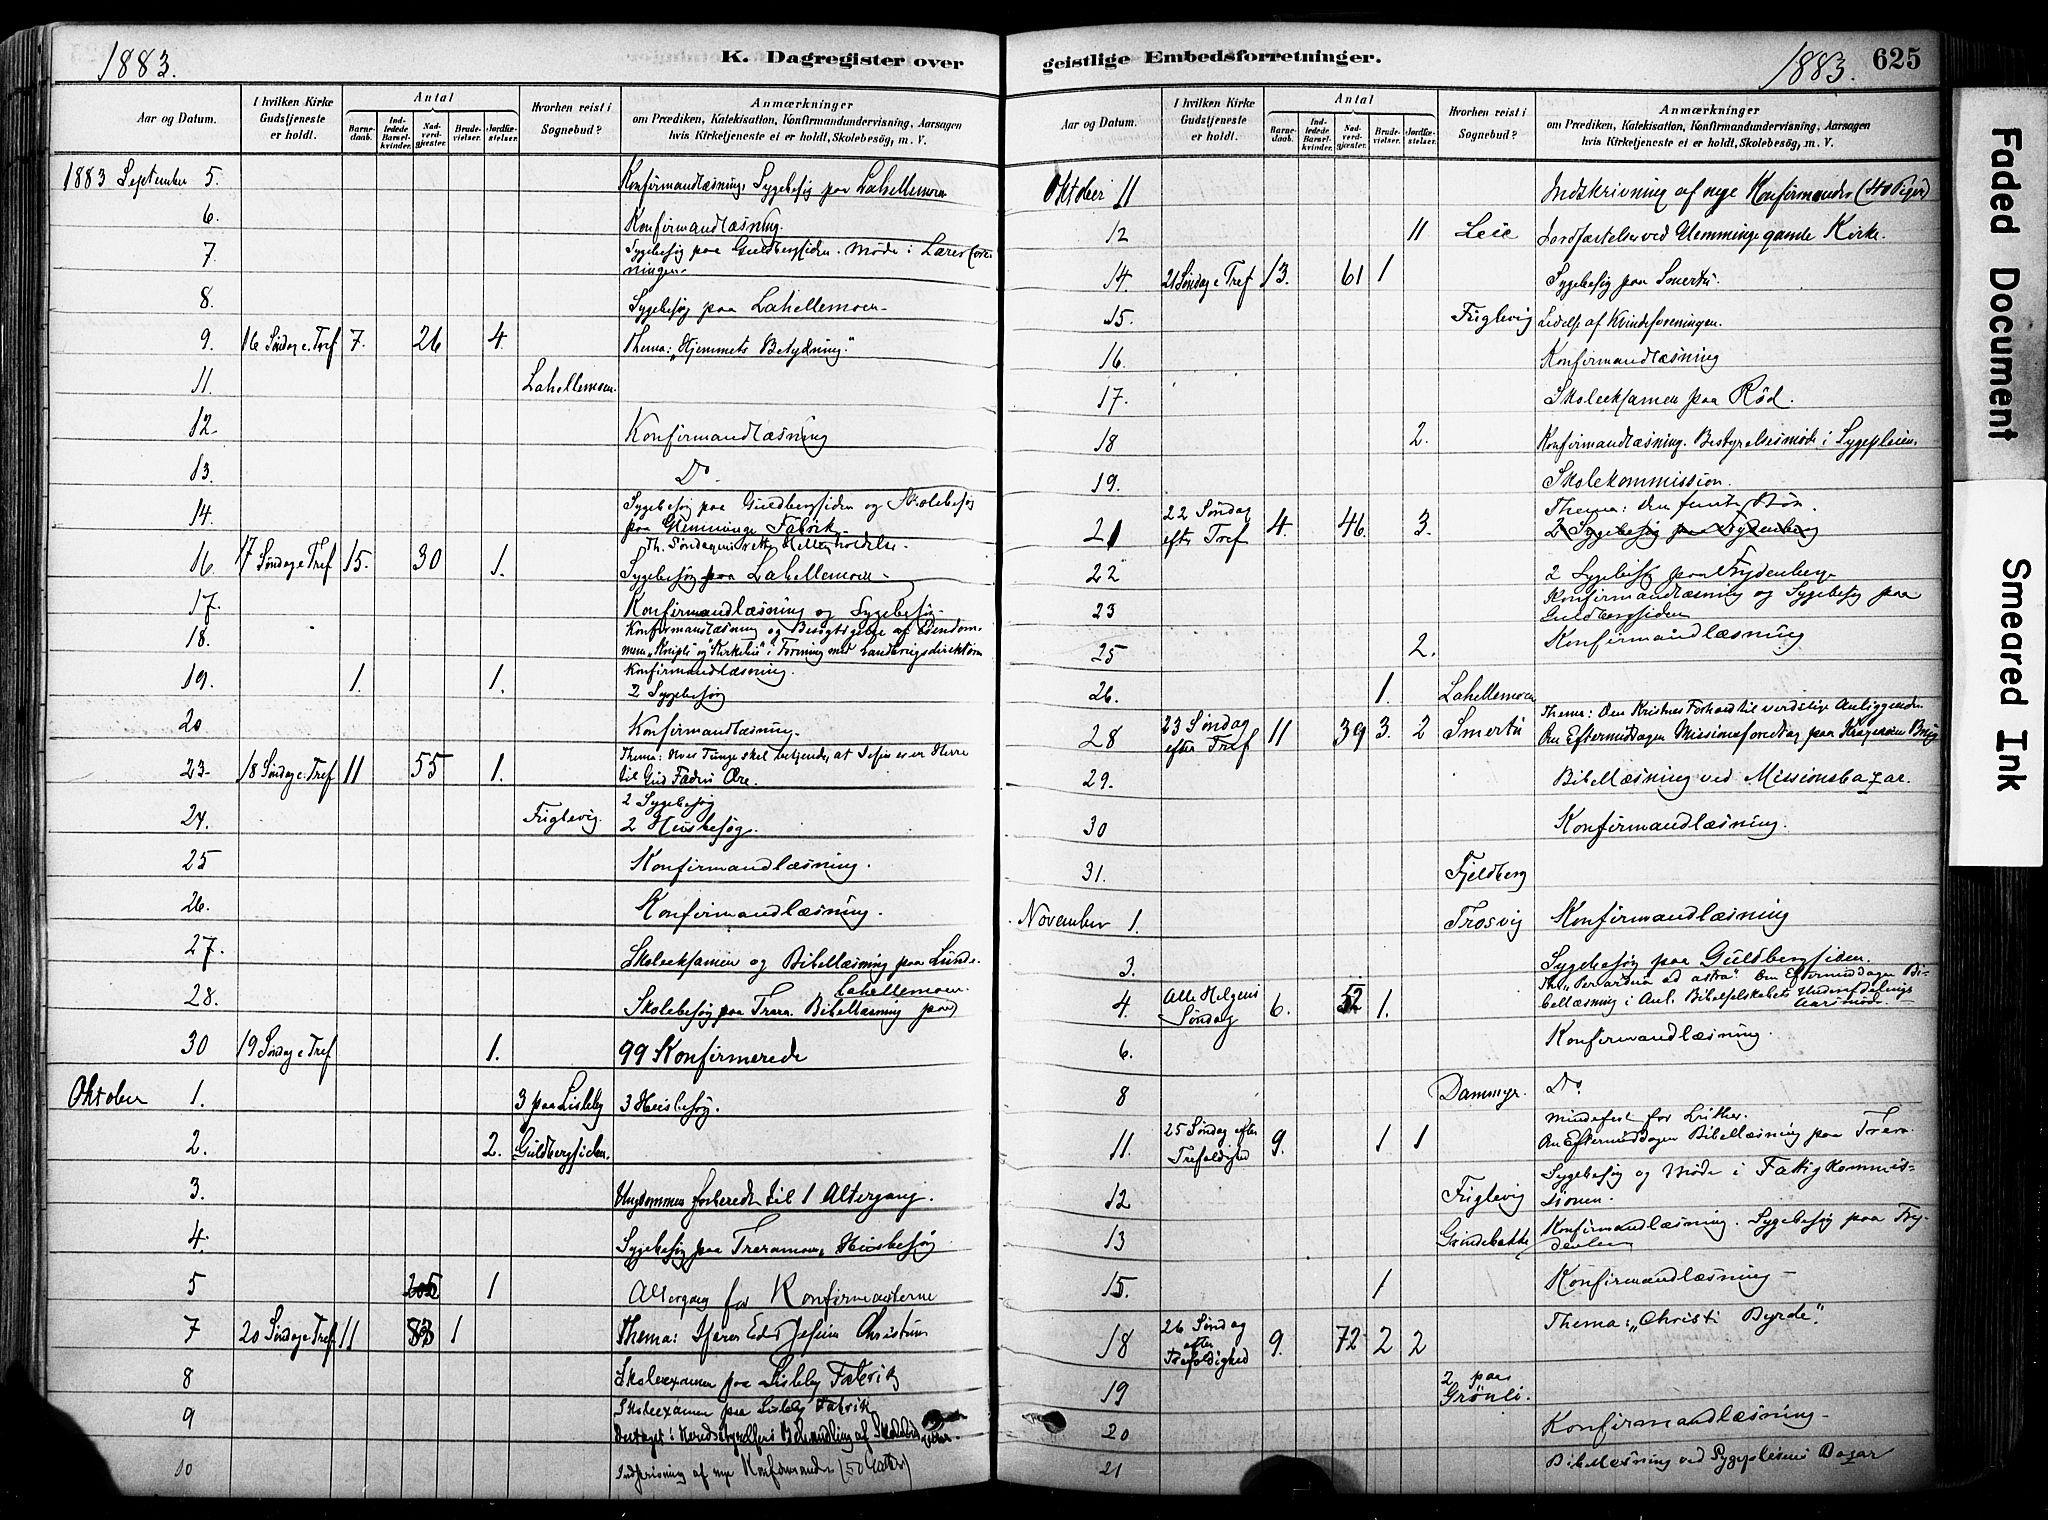 1883.
K. Dagregister over
Aar og Datum.
I hvilken Kirke Gudstjeneste er holdt.
Antal
Barnedaab.
Indledede Barselkvinder.
Nadverdgjester.
Brudevielser.
Jordfæstelser.
Hvorhen reist i Sognebud?
Anmærkninger
om Prædiken, Katekisation, Konfirmandundervisning, Aarsagen
hvis Kirketjeneste ei er holdt, Skolebesög, m. V.
1883 September 5. Konfirmandlæsning. Sygebesøg paa Lahellemoen
6. Konfirmandlæsning.
7. Sygebesøg paa Guldbergsiden. Møde i Lærerfore-
ningen.
8. Sygebesøg paa Lahellemoen
9. 16 Søndag e. Tref 7. 26 4. Thema: „Hjemmets Betydning."
11. Lahellemoen.
12. Konfirmandlæsning
13. Do
14. Sygebesøg paa Guldbergsiden og Skolebesøg
paa Glemminge Fabrik
16. 17 Søndag e Tref 15. 30 1. Th. Søndagens rette Helligholdelse.
Sygebesøg paa Lahellemoen
17. Konfirmandlæsning og Sygebesøg.
18. Konfirmandlæsning og Besigtigelse af Eiendom-
19. 1. 1. Konfirmandlæsning.
2 Sygebesøg
20 Konfirmandlæsning.
23. 18 Søndag e. Tref 11 55 1. Thema: Hver Tunge skal bekjende, at Jesus er en Herre
til Gud Faders Ære.
24. Fuglevig. 2 Sygebesøg
2 Huusbesøg.
25 Konfirmandlæsning.
26. Konfirmandlæsning.
27. Skoleeksamen og Bibellæsning paa Lunde.
28. Skolebesøg paa Trara. Bibellæsning paa Lahellemoen.
30 19 Søndag e Tref 1. 99 Konfirmerede
Oktober 1. 3 paa Lisleby 3 Huusbesøg.
2. 2. Guldbergsiden.
3. Ungdommen forberedt til 1 Altergang.
4. Sygebesøg paa Traramoen, Huusbesøg
5 205 1 Altergang for Konfirmanterne
7 20 Søndag e Tref 11 83 1 Thema: Ifører Eder Jesum Christum
8 Skoleexamen paa Lisleby Fabrik
9 Skoleexamen paa Lisleby Fabrik
Deltaget i Heredsstyrelsens Behandling af
10 Indskrivning af nye Konfirmander (50 Gutter)
geistlige Embedsforretninger.
1883. 625
Aar og Datum.
I hvilken Kirke Gudstjeneste er holdt.
Antal
Barnedaab.
Indledede Barselkvinder.
Nadverdgjester.
Brudevielser.
Jordfæstelser.
Hvorhen reist i Sognebud?
Anmærkninger
om Prædiken, Katekisation, Konfirmandundervisning, Aarsagen
hvis Kirketjeneste ei er holdt, Skolebesög, m. V.
Oktober 11 Indskrivning af nye Konfirmander (40 Piger)
12 11 Leie Jordfæstelse ved Glemminge gamle Kirke.
14. 21 Søndag e Tref 13. 61 1 Sygebesøg paa Smertu.
15. Fuglevig Ledelse af Kvindeforeningen.
16. Konfirmandlæsning
17. Skoleeksamen paa Rød.
18 2. Konfirmandlæsning. Bestyrelsesmøde i Sygepleien.
19. Skolekommission.
21 22 Søndag efter Tref 4. 46 3. Thema: den femte Bøn.
2 Sygebesøg paa Frydenberg
22 2 Sygebesøg paa Frydenberg
23 Konfirmandlæsning og Sygebesøg paa
Guldbergsiden
25 2. Konfirmandlæsning
26. 1. Lahellemoen
28 23 Søndag efter Tref 11 39 3. 2 Smertu Thema: Den Kristnes Forhold til verdslige Anliggender
Om Eftermiddagen Missionsforedrag paa
29. Bibellæsning ved Missionsbazar.
30 Konfirmandlæsning.
31. Fjeldberg
November 1. Trosvig Konfirmandlæsning
3. Sygebesøg paa Guldbergsiden.
4. Alle Helgens Søndag 6. 52 1. Th. „Per ardua ad astra" Om Eftermiddagen Bi-
bellæsning i Anl. Bibelselskabets Underafdelings Aarsmøde.
6. Konfirmandlæsning.
8 Dammyr. Do
11. 25 Søndag efter Trefoldighed 9. 1 1 Mindefest for Luther.
Om Eftermiddagen Bibellæsning paa Trara.
12 Fuglevig Sygebesøg og Møde i Fattigkommis-
sionen.
13 Grindebakke Konfirmandlæsning. Sygebesøg paa Fry-
15. 1 Konfirmandlæsning
18 26 Søndag efter Trefoldighed 9. 72 2 2 Thema: „Christi Byrde".
19 2 paa Grönli.
20 Konfirmandlæsning
21 Bibellæsning ved Sygepleiens Bazar
Faded Document
Smeared Ink